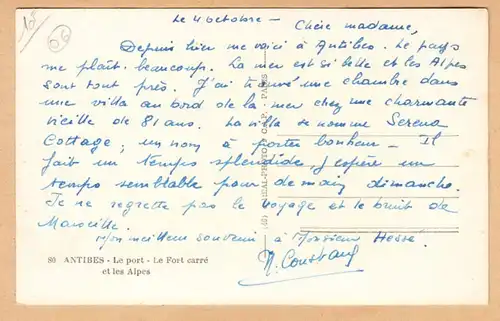 10F
06
Le 4 octobre - Chère madame,
Depuis hier me voici à Antibes. Le pays
me plaît beaucoup. La mer est si belle et les Alpes
sont tout près. J'ai trouvé une chambre dans
une villa au bord de la mer chez une charmante
vieille de 81 ans. La villa se nomme Serena
Cottage, un nom à porter bonheur - Il
fait un temps splendide, j'espère un
temps semblable pour demain dimanche.
Je ne regrette pas le voyage et le bruit de
Marseille.
Mon meilleur souvenir à Monsieur Hessé.
80 ANTIBES - Le port - Le Fort carré
et les Alpes
PARIS